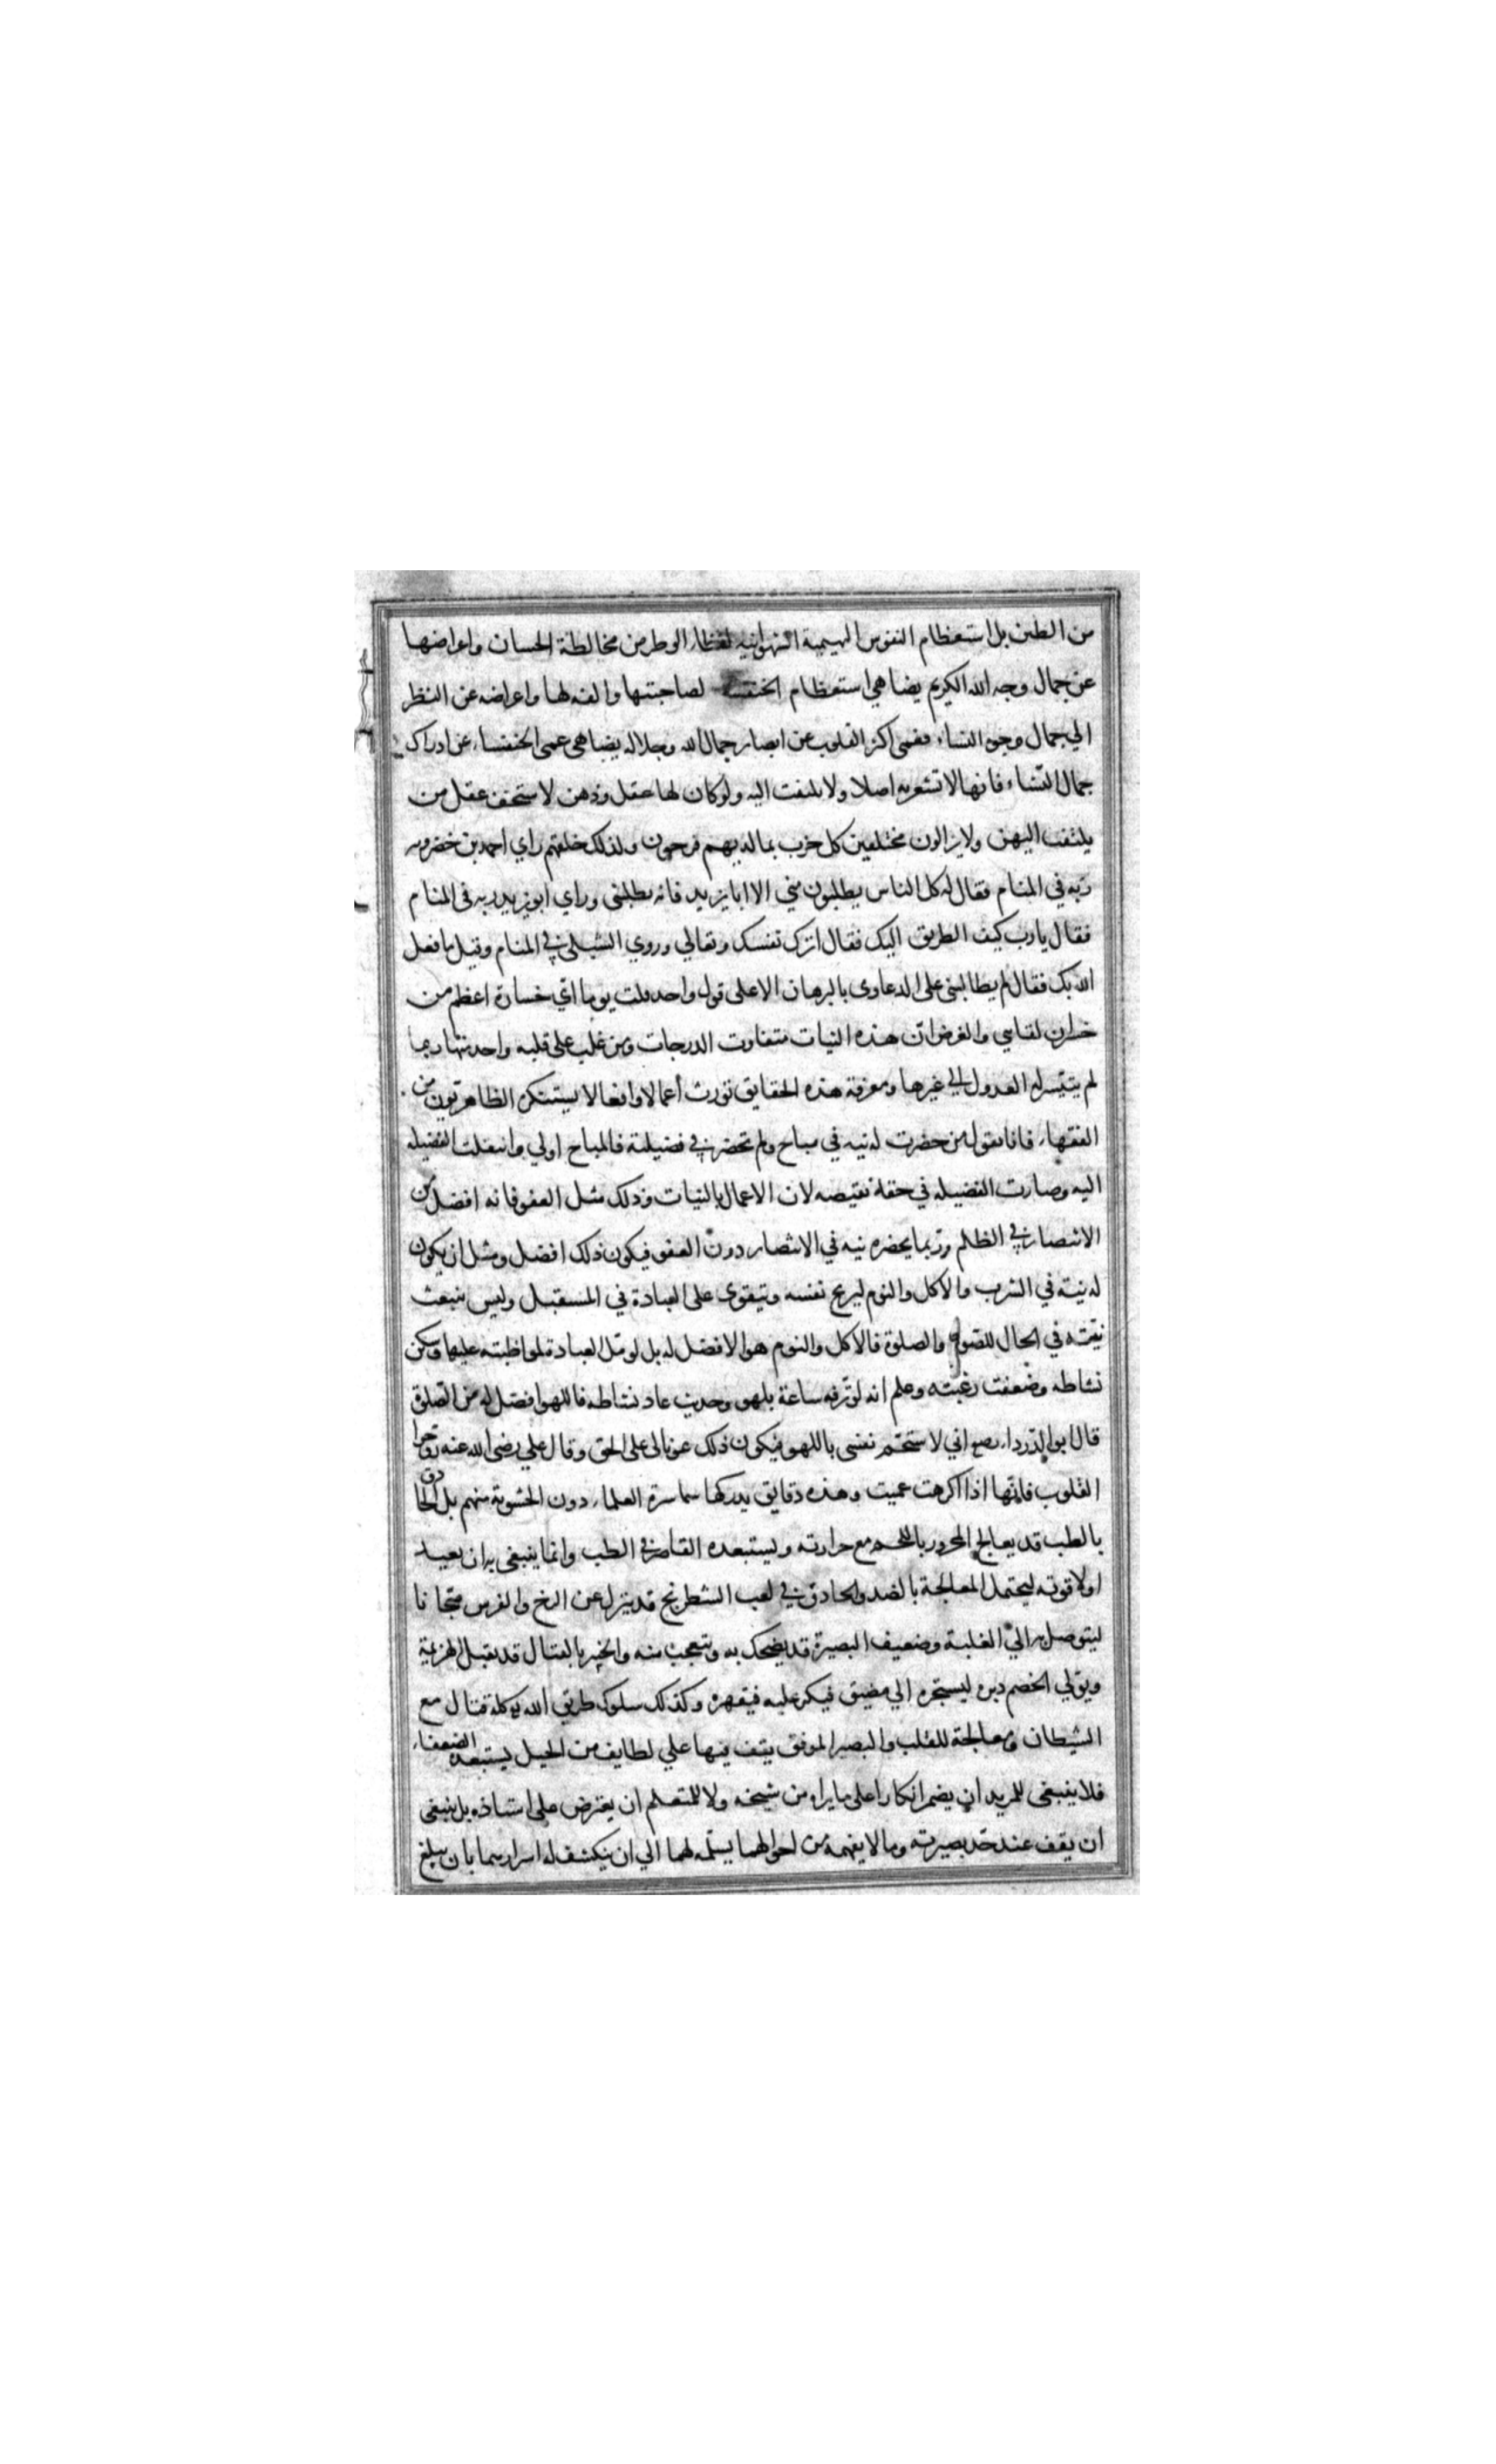 من الطين بل استعظام النفوس البهيمية الشهوانية لقضاء الوطر من مخالطة الحسان واعراضها
عن جمال وجه الله الكريم يضاهي استعظام الخنفساء لصاحبتها والفه لها واعراضه عن النظر
الي جمال وجوه النساء فعمى اكثر القلوب عن ابصار جمال الله وجلاله يضاهي عمى الخنفساء عن ادراك
جمال النساء فانها لا تشعر به اصلا ولا يلتفت اليه ولو كان لها عقل وذهن لاستخف عقل من
يلتفت اليهن ولا يزالون مختلفين كل حزب بما لديهم فرحون ولذلك خلقهم راي احمد بن خضرويه
ربه في المنام فقال له كل الناس يطلبون مني الا ابا يزيد فانه يطلبني وراي ابو يزيد ربه في المنام
فقال يا رب كيف الطريق اليك فقال اترك نفسك وتعالي وروي الشبلي في المنام وقيل ما فعل
الله بك فقال لم يطالبني على الدعاوى بالبرهان الا على قول واحد قلت يوما اي خسارة اعظم من
خسران لقائي والغرض ان هذه النيات متفاوت الدرجات ومن غلب على قلبه واحد منها ربما
لم يتيسر له العدول الي غيرها ومعرفة هذه الحقايق تورث أعمالا وافعالا يستنكره الظاهريون من
الفقهاء فانا نقول من حضرت له نيه في مباح ولم تحضر في فضيلة فالمباح اولي وانتقلت الفضيله
اليه وصارت الفضيله في حقه نقيصه لان الاعمال بالنيات وذلك مثل العفو فانه افضل من
الانتصار في الظلم وربما يحضره نيه في الانتصار دون العفو فيكون ذلك افضل ومثل ان يكون
له نية في الشرب والاكل والنوم ليريح نفسه ويتقوى على العبادة في المستقبل وليس ينبعث
نيته في الحال للصوم والصلوة فالاكل والنوم هو الافضل له بل لو مل العبادة لمواظبته عليها وسكن
نشاطه وضعفت رغبته وعلم انه لو ترفه ساعة بلهو وحديث عاد نشاطه فاللهو افضل له من الصلوة
قال ابو الدرداء رضع اني لاستجم نفسي باللهو فيكون ذلك عونا لي على الحق وقال علي رضى الله عنه روحوا
القلوب فانها اذا اكرهت عميت وهذه دقايق يدركها سماسرة العلماء دون الحشوية منهم بل الحاذق
بالطب قد يعالج المحرور باللحم مع حرارته ويستبعده القاصر في الطب وانما ينبغي به ان يعيد
اولا قوته ليحتمل المعالجة بالضد والحاذق في لعب الشطرنج قد ينزل عن الرخ والفرس مجانا
ليتوصل به الي الغلبة وضعيف البصيرة قد يضحك به ويتعجب منه والخبير بالقتال قد يقبل الهزيمة
ويولي الخصم دبره ليستجره الي مضيق فيكر عليه فيقهره وكذلك سلوك طريق الله كله قتال مع
الشيطان ومعالجة للقلب والبصير الموفق يقف فيها علي لطايف من الحيل يستبعده الضعفاء
فلا ينبغي للمريد ان يضمر انكارا على ما يراه من شيخه ولا للمتعلم ان يعترض على استاذه بل ينبغي
ان يقف عند حد بصيرته وما لا يفهمه من احوالهما يسلمه لهما الي ان ينكشف له اسرارهما بان يبلغ